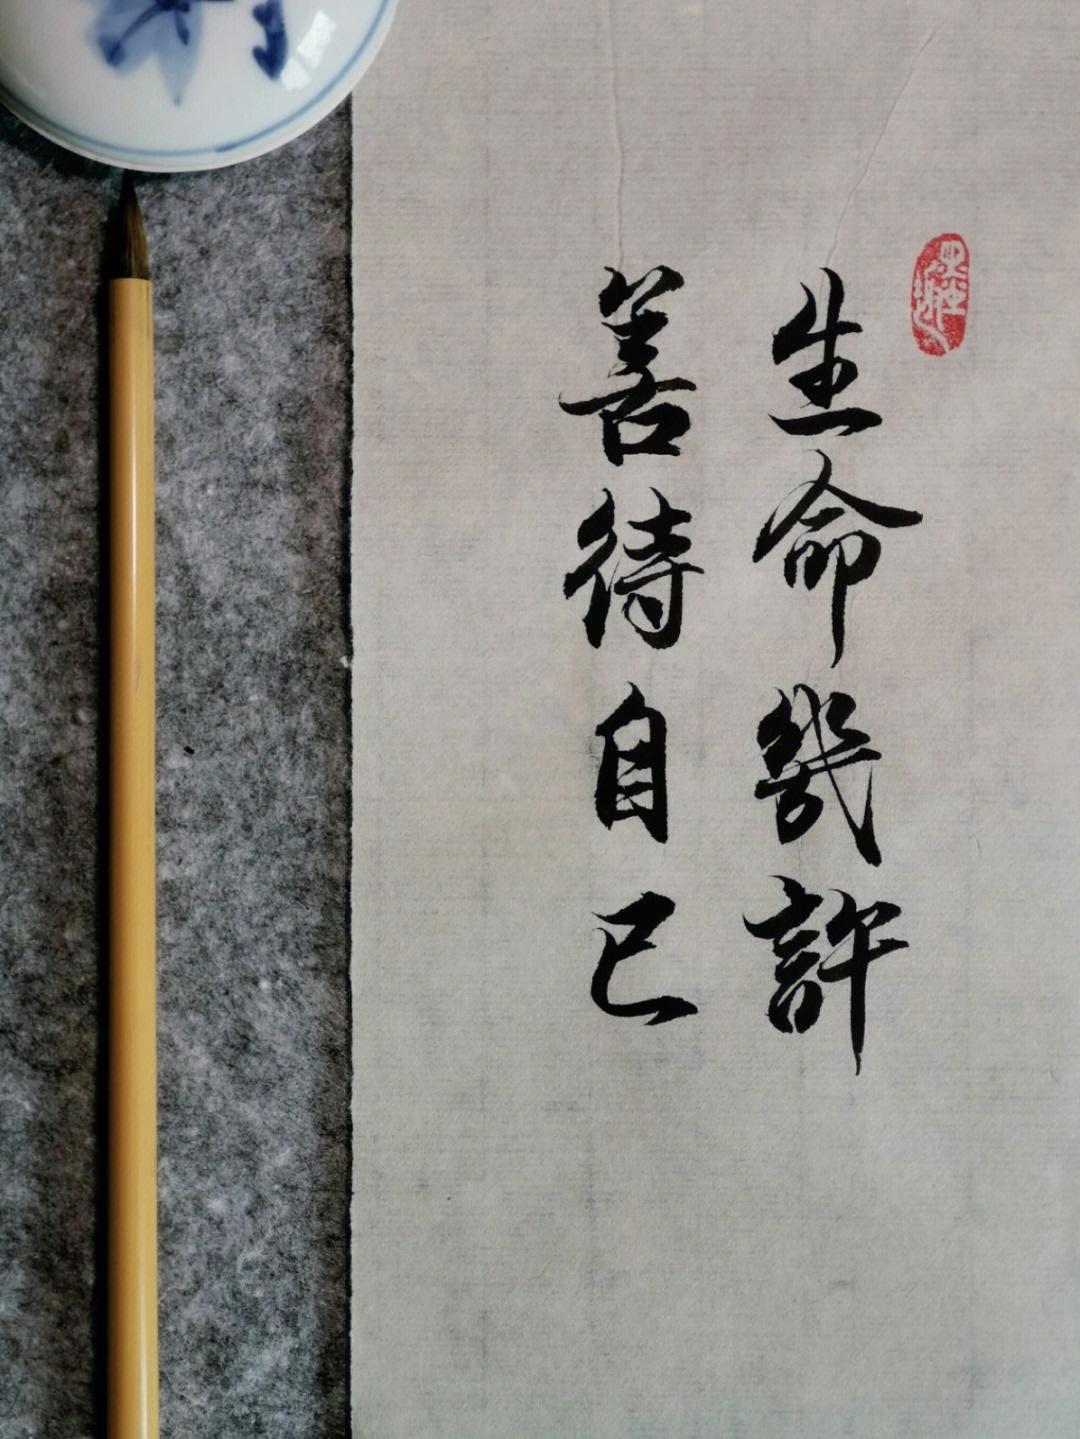 生命幾許
善待自己